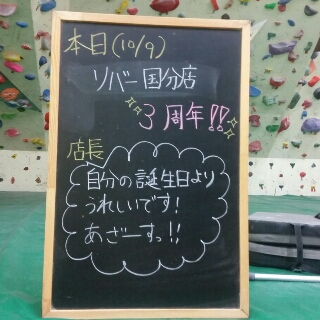 本日(10/9)
リバー国分店
3周年!!
店長
自分の誕生日より
うれしいです!
あざーすっ!!